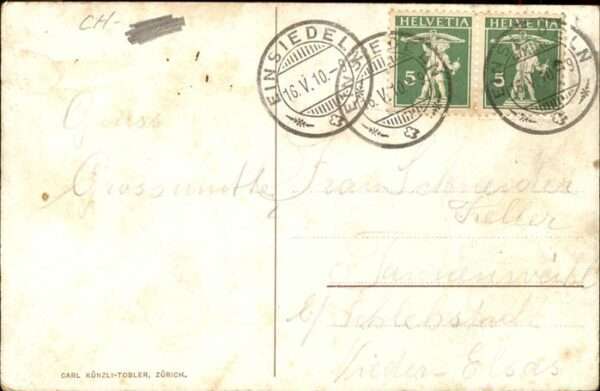 CH-
HELVETIA HELVETIA
5 5
EINSIEDELN
16.V.10.-8
EINSIEDELN
16.V.10
EINSIEDELN
Gruss
Grossmutter
Frau Schneider
Keller
b/ Schlettstadt
Nieder-Elsas
CARL KÜNZLI-TOBLER, ZÜRICH.